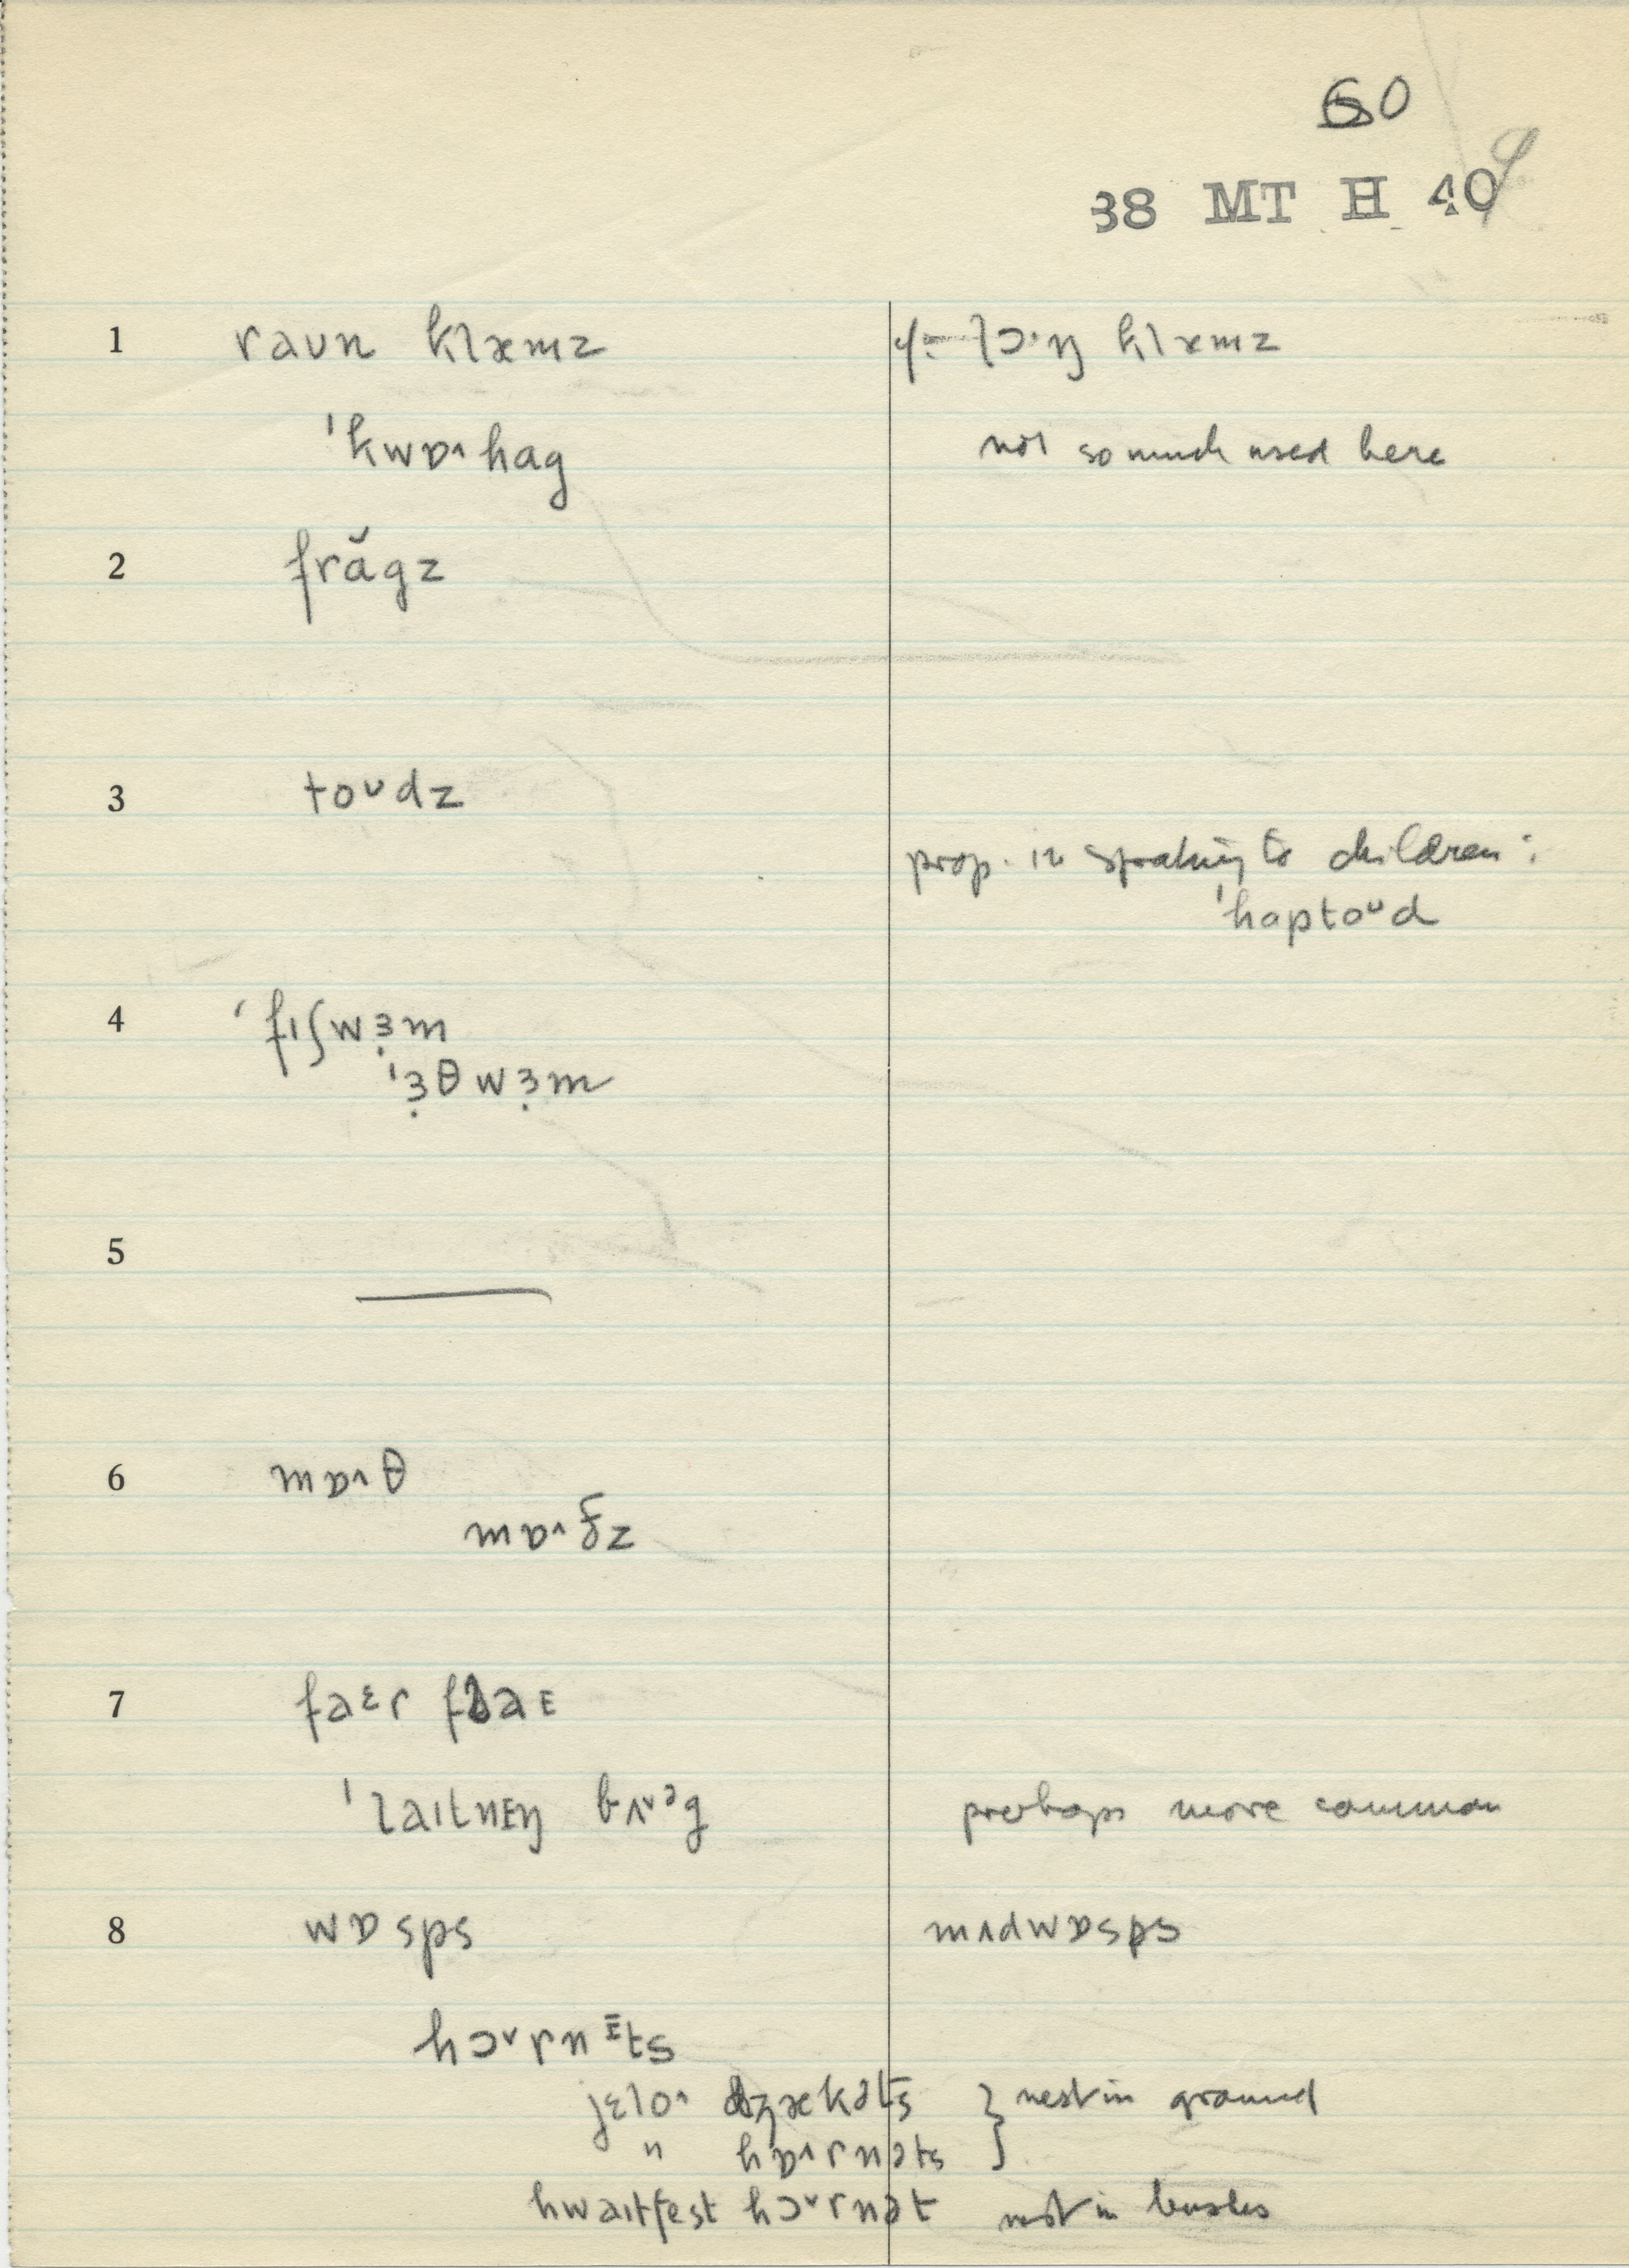 60
38 MT H 40
1 raʊn klæmz lɔ·ŋ klæmz
ˈkwɒ˄hag not so much used here
2 frăgz
3 toᴜdz
prop. in speaking to children :
ˈhaptoᴜd
4 ˈfɪʃwɜ̣m
ˈɜ̣θwɜ̣m
5 —
6 mɒ˄θ
mɒ˄ðz
7 faᵋr flaᴇ
ˈlaɪtnᴇŋ bʌ˅ᵊg perhaps more common
8 wɒsps mʌdwɒsps
hɔ˅rnᴇts
jɛlo˄ dʒækəts } nest in ground
" hɒ˄rnəts
hwaɪtfest hɔ˅rnət nest in bushes